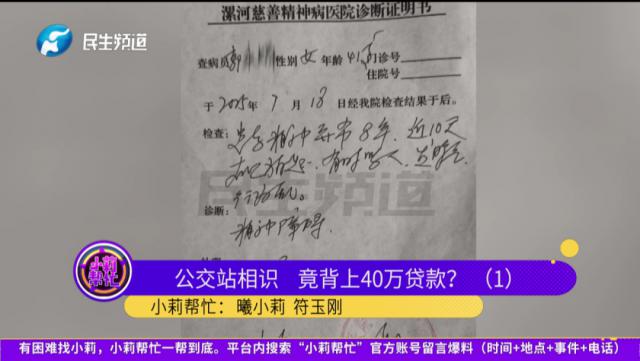 漯河慈善精神病医院诊断证明书
民生频道
查病员郭 性别女 年龄41岁 门诊号
住院号
于2025年7月18日经我院检查结果于后。
检查:患者精神异常8年,近10天
有时骂人
行为乱。
民生频道
诊断:
精神障碍
小莉帮忙
公交站相识 竟背上40万贷款?(1)
小莉帮忙:曦小莉 符玉刚
有困难找小莉,小莉帮忙一帮到底。平台内搜索“小莉帮忙”官方账号留言爆料(时间+地点+事件+电话)